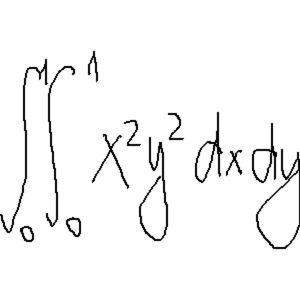 ∫₀¹∫₀¹ x²y² dxdy